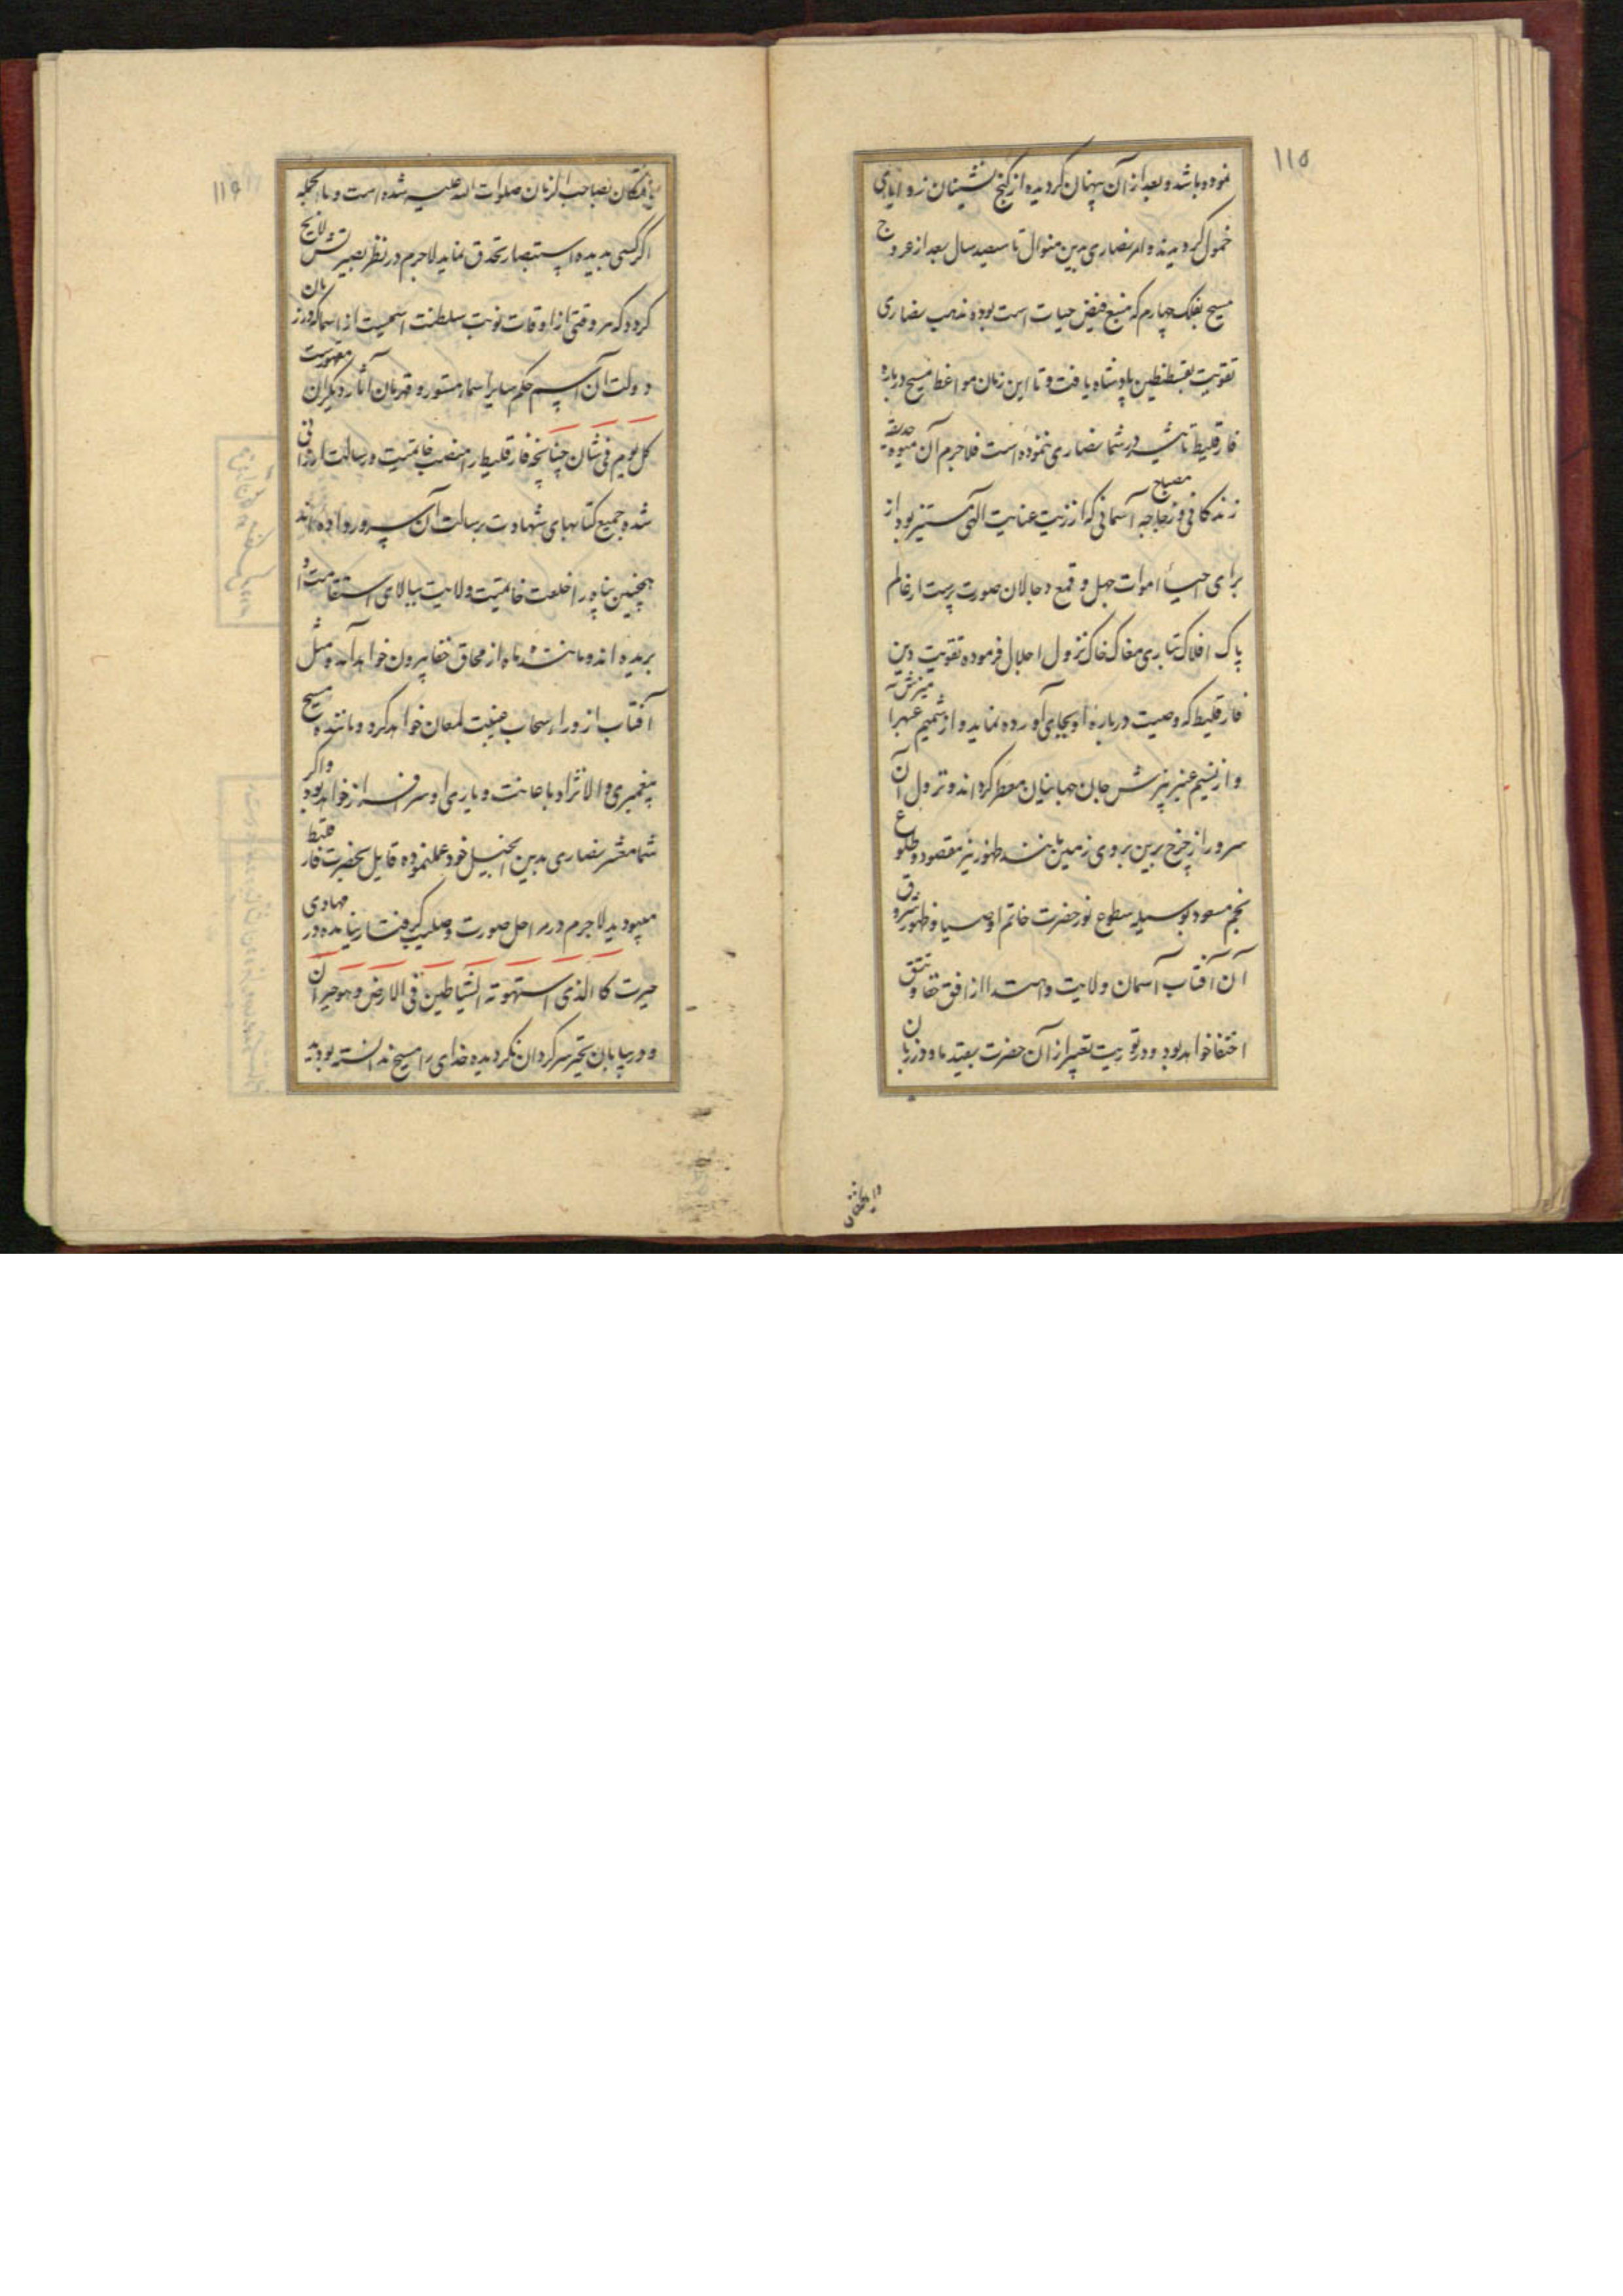 ۱۱۵
نموده باشد و بعد از آن پنهان گردیده از کنج نشینان زوایای
خمول گردیدند و امر نصاری بدین منوال تا سیصد سال بعد از عروج
مسیح بفلک چهارم که منبع فیض حیات است بوده مذهب نصاری
تقویت بقسطنطین پادشاه یافت و تا این زمان مواعظ مسیح درباره
فارقلیط تاثیر در شما نصاری ننموده است فلاجرم آن میوه حدیقه
زندگانی و زجاجه مصباح آسمانی که از زیت عنایت الهی مستنیر بود از
برای احیاء اموات جهل و قمع دجالان صورت پرست از عالم
پاک افلاک بتاری مغاک خاک نزول اجلال فرموده تقویت دین
فارقلیط که وصیت درباره او بجای آورده نماید و از شمیم عنبر آمیزش
و از نسیم عنبر بیزش جان جهانیان معطر کرداند و نزول آن
سرور از چرخ برین بروی زمین مانند ظهور نیر مقصود و طلوع
نجم مسعود بوسیله سطوع نور حضرت خاتم اوصیا و ظهور شروق
آن آفتاب آسمان ولایت و اهتدا از افق خفا و تتق
اختفا خواهد بود و در توریت تعبیر از آن حضرت بقیدماد و در زبان
و ایضا
۱۱۶
بصاحب الزمان صلوات الله علیه شده است و بالجمله
اگر کسی بدیده استبصار تحدق نماید لاجرم در نظر بصیرتش ولایح
گردد که هر وقتی از اوقات نوبت سلطنت اسمیست از اسما که در زمان
دولت آن اسم حکم سایر اسماء مستور و قهرمان آثار دیگران مقهورست
کل یوم فی شان چنانچه فارقلیط را منصب خاتمیت و رسالت ارزانی
شده جمیع کتابهای شهادت برسالت آن سرور داده اند
همچنین بناپور را خلعت خاتمیت ولایت ببالای استقامت او
بریده اند و مانند ماه از محاق خفا بیرون خواهد آمد و مثل
آفتاب از وراء سحاب غیبت لمعان خواهد کرد و مانند مسیح
پیغمبری والانژاد باعانت و یاری او سرافراز خواهد بود و اگر
شما معشر نصاری بدین انجیل خود عمل نموده قایل بحضرت فارقلیط
میبودید لاجرم در مراحل صورت و صلیب گرفتار نیامده در مهاوی
حیرت کالذی استهوته الشیاطین فی الارض و هو حیران
و در بیابان تحیر سرگردان نگردیده خدای را مسیح ندانسته بودید